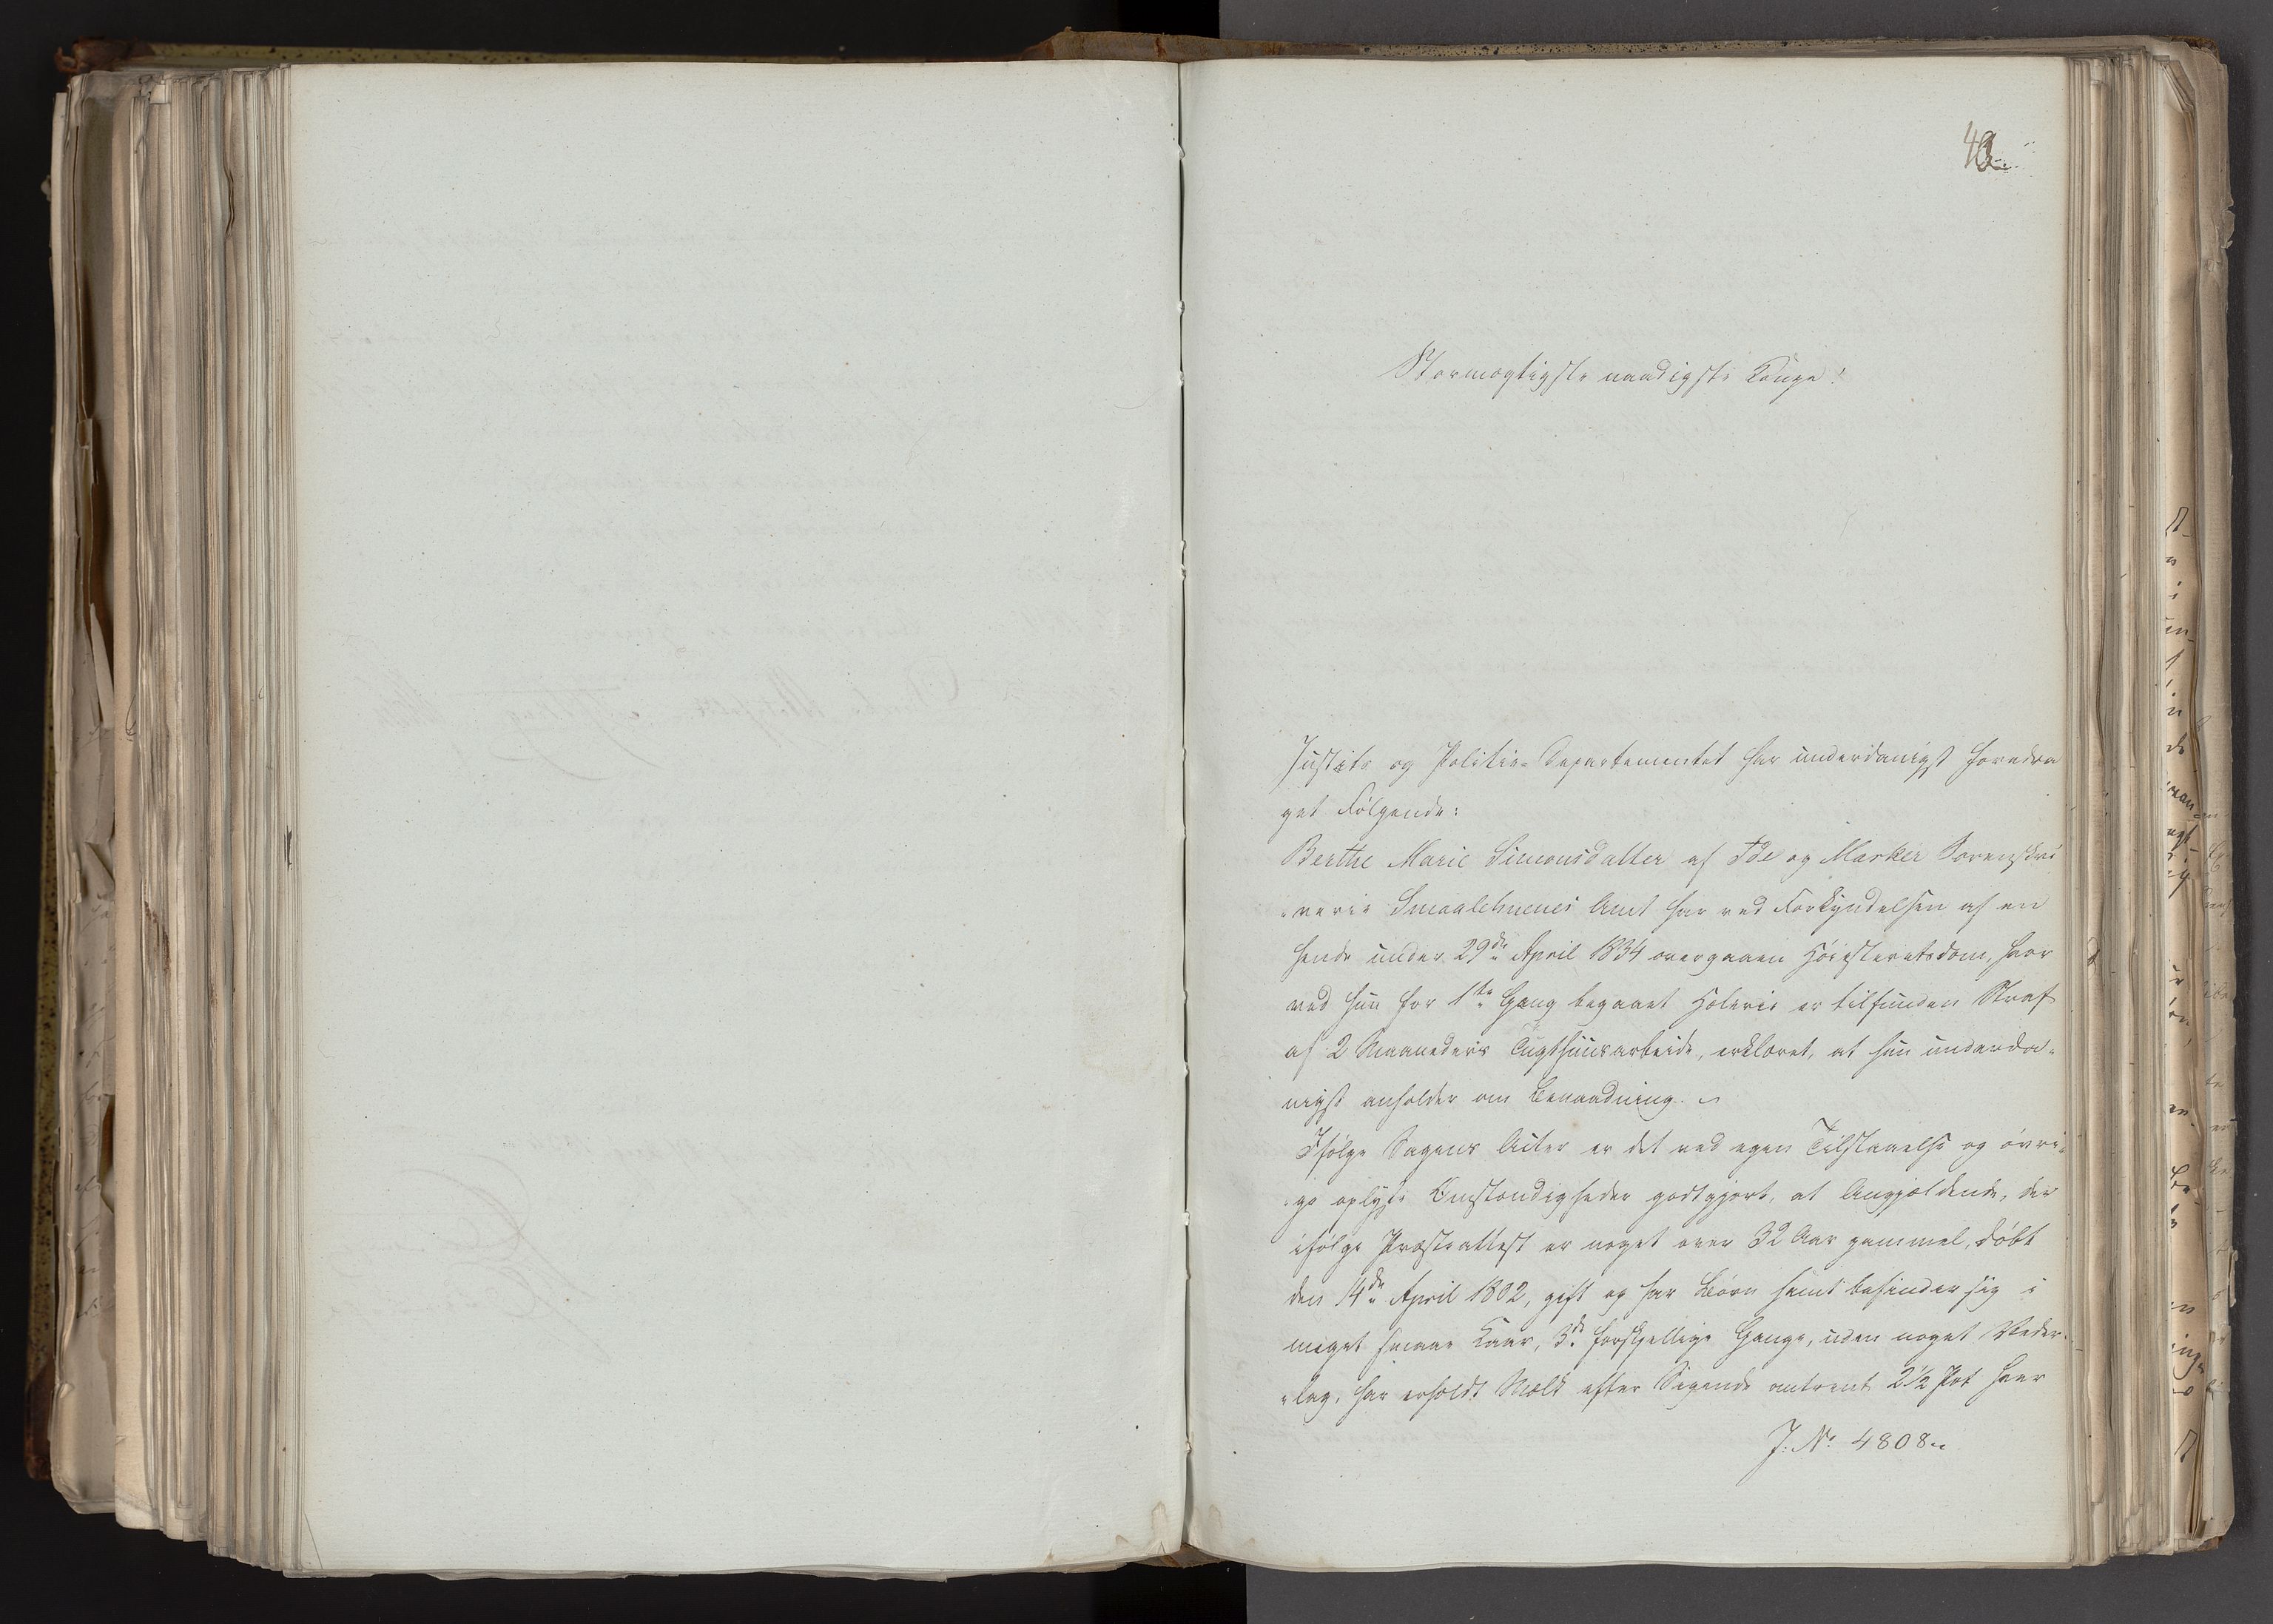 43.
Stormægtigste naadigste Konge!
Justits og Politie-Departementet har underdanigst foredra
get Følgende:
Berthe Marie Simonsdatter af Ide og Marker Sorenskri
"verie Smaalehnenes Amt har ved Forkyndelsen af en
hende under 29de April 1834 overgaaen Höiesteretsdom, hvor
ved hun for 1ste Gang begaaet Hæleri er tilfunden Straf
af 2 Maaneders Tugthuusarbeide, erklæret, at hun underda-
nigst anholder om Benaadning.
Ifölge Sagens Acter er det ved egen Tilstaaelse og övri-
ge oplyste Omstændigheder godtgjort, at Angjældende, der
ifölge Præsteattest er noget over 32 Aar gammel, döbt
den 14de April 1802, gift og har Börn samt befinder sig i
meget smaae Kaar, 3de forskjellige Gange, uden noget Veder-
"lag, har erholdt Mælk efter Sigende omtrent 2½ Pot hver
J: No 4808